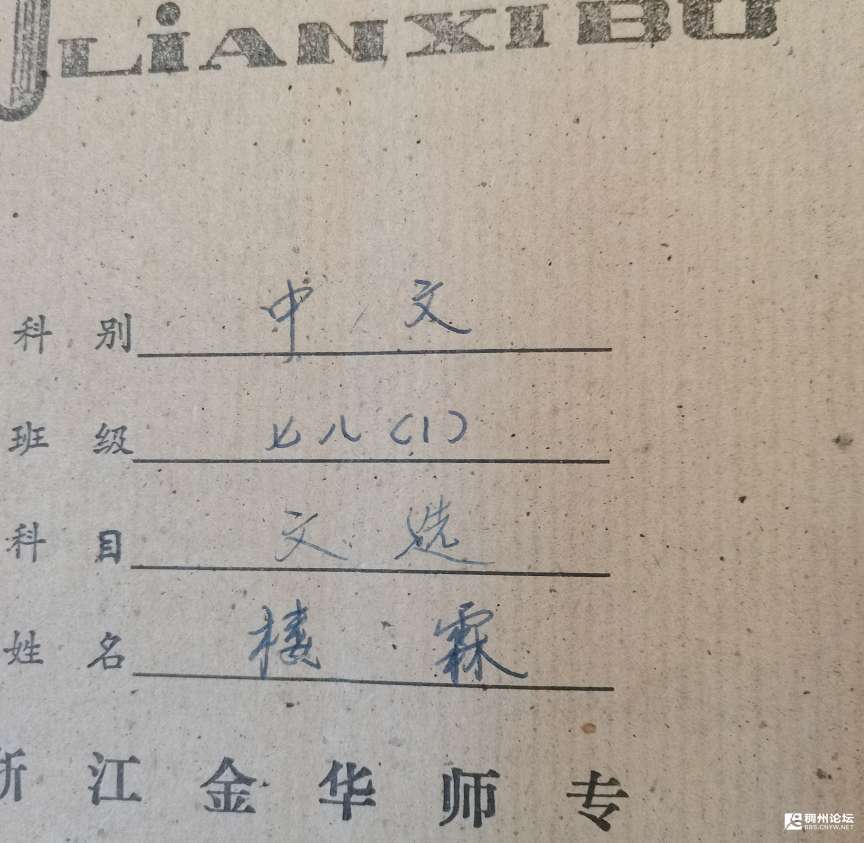 LiANXIBU
科别 中文
班级 七八(1)
科目 文选
姓名 楼霖
浙江金华师专
稠州论坛
BBS.CNYW.NET